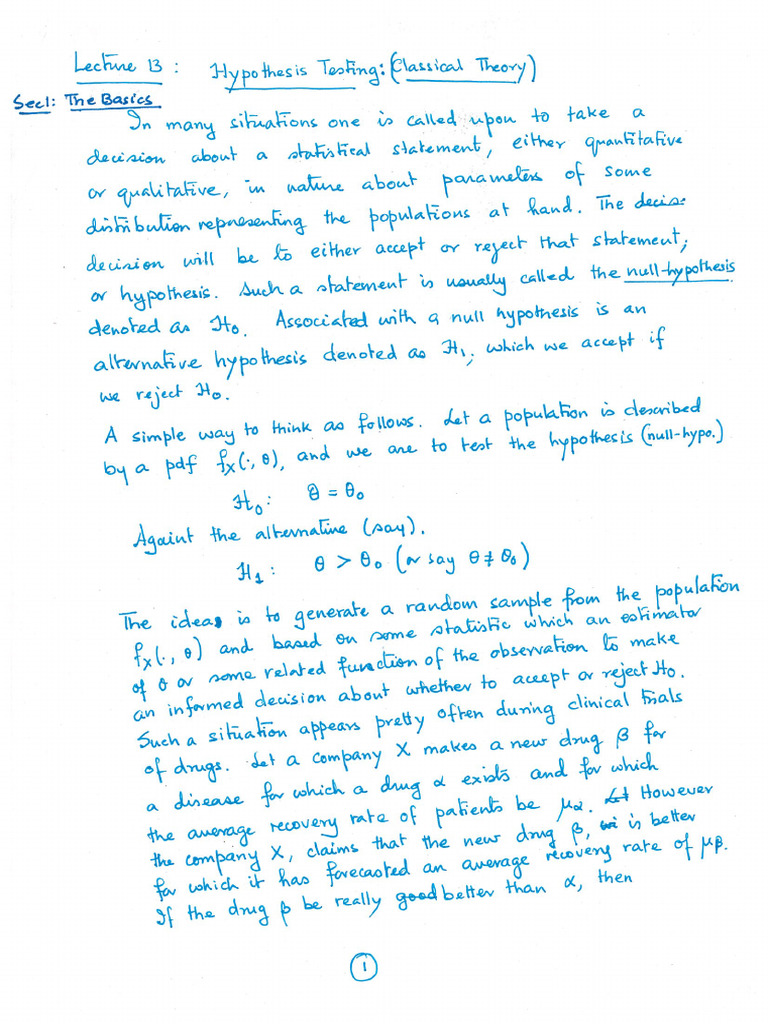 Lecture 13 : Hypothesis Testing: (Classical Theory)
Sec1: The Basics
In many situations one is called upon to take a
decision about a statistical statement, either quantitative
or qualitative, in nature about parameters of some
distribution representing the populations at hand. The decis-
decision will be to either accept or reject that statement,
or hypothesis. Such a statement is usually called the null-hypothesis
denoted as H₀. Associated with a null hypothesis is an
alternative hypothesis denoted as H₁, which we accept if
we reject H₀.
A simple way to think as follows. Let a population is described
by a pdf fₓ(·, θ), and we are to test the hypothesis (null-hypo.)
H₀: θ = θ₀
Againt the alternative (say).
H₁: θ > θ₀ (or say θ ≠ θ₀)
The ideas is to generate a random sample from the population
fₓ(·, θ) and based on some statistic which an estimator
of θ or some related function of the observation to make
an informed decision about whether to accept or reject H₀.
Such a situation appears pretty often during clinical trials
of drugs. Let a company X makes a new drug β for
a disease for which a drug α exists and for which
the average recovery rate of patients be μα. Let However
the company X, claims that the new drug β, is better
for which it has forecasted an average recovery rate of μβ.
If the drug β be really good better than α, then
1